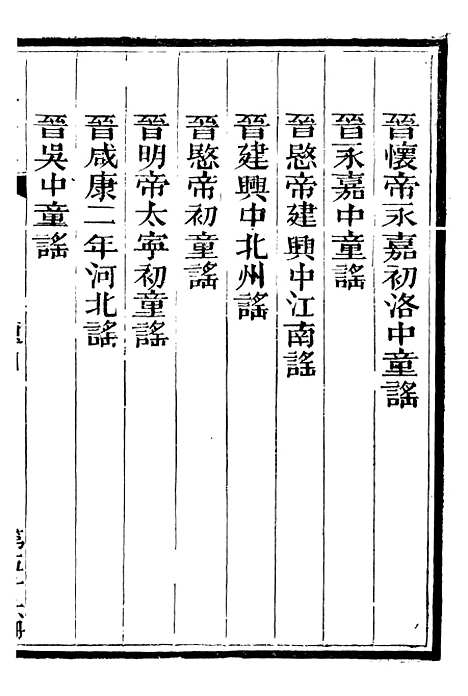 晉懷帝永嘉初洛中童謠
晉永嘉中童謠
晉愍帝建興中江南謠
晉建興中北州謠
晉愍帝初童謠
晉明帝太寧初童謠
晉咸康二年河北謠
晉吳中童謠